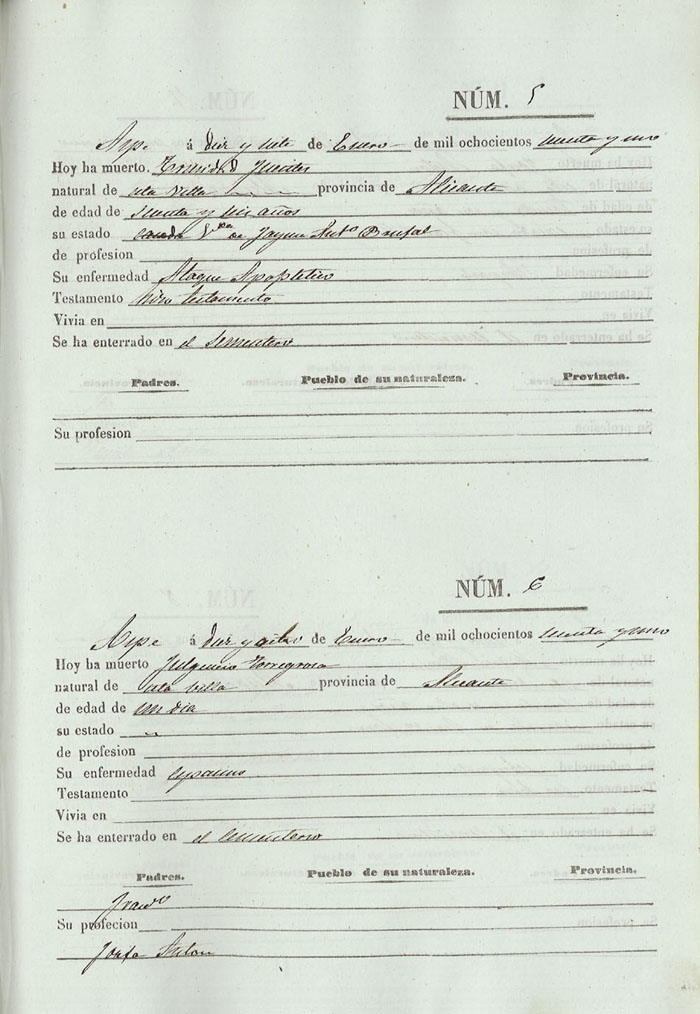 NÚM. 5
Aspe á diez y siete de Enero de mil ochocientos sesenta y uno
Hoy ha muerto. Trinidad
natural de esta villa provincia de Alicante
de edad de sesenta y seis años
su estado de Jayme Anto
de profesion
Su enfermedad Ataque Apopletico
Testamento hizo testamento
Vivia en
Se ha enterrado en el Sementerio
Padres. Pueblo de su naturaleza. Provincia.
Su profesion
NÚM. 6
Aspe á diez y ocho de Enero de mil ochocientos sesenta y uno
Hoy ha muerto Torregrosa
natural de esta villa provincia de Alicante
de edad de un dia
su estado
de profesion
Su enfermedad
Testamento
Vivia en
Se ha enterrado en el Cementerio
Padres. Pueblo de su naturaleza. Provincia.
Franco
Su profecion
Josefa